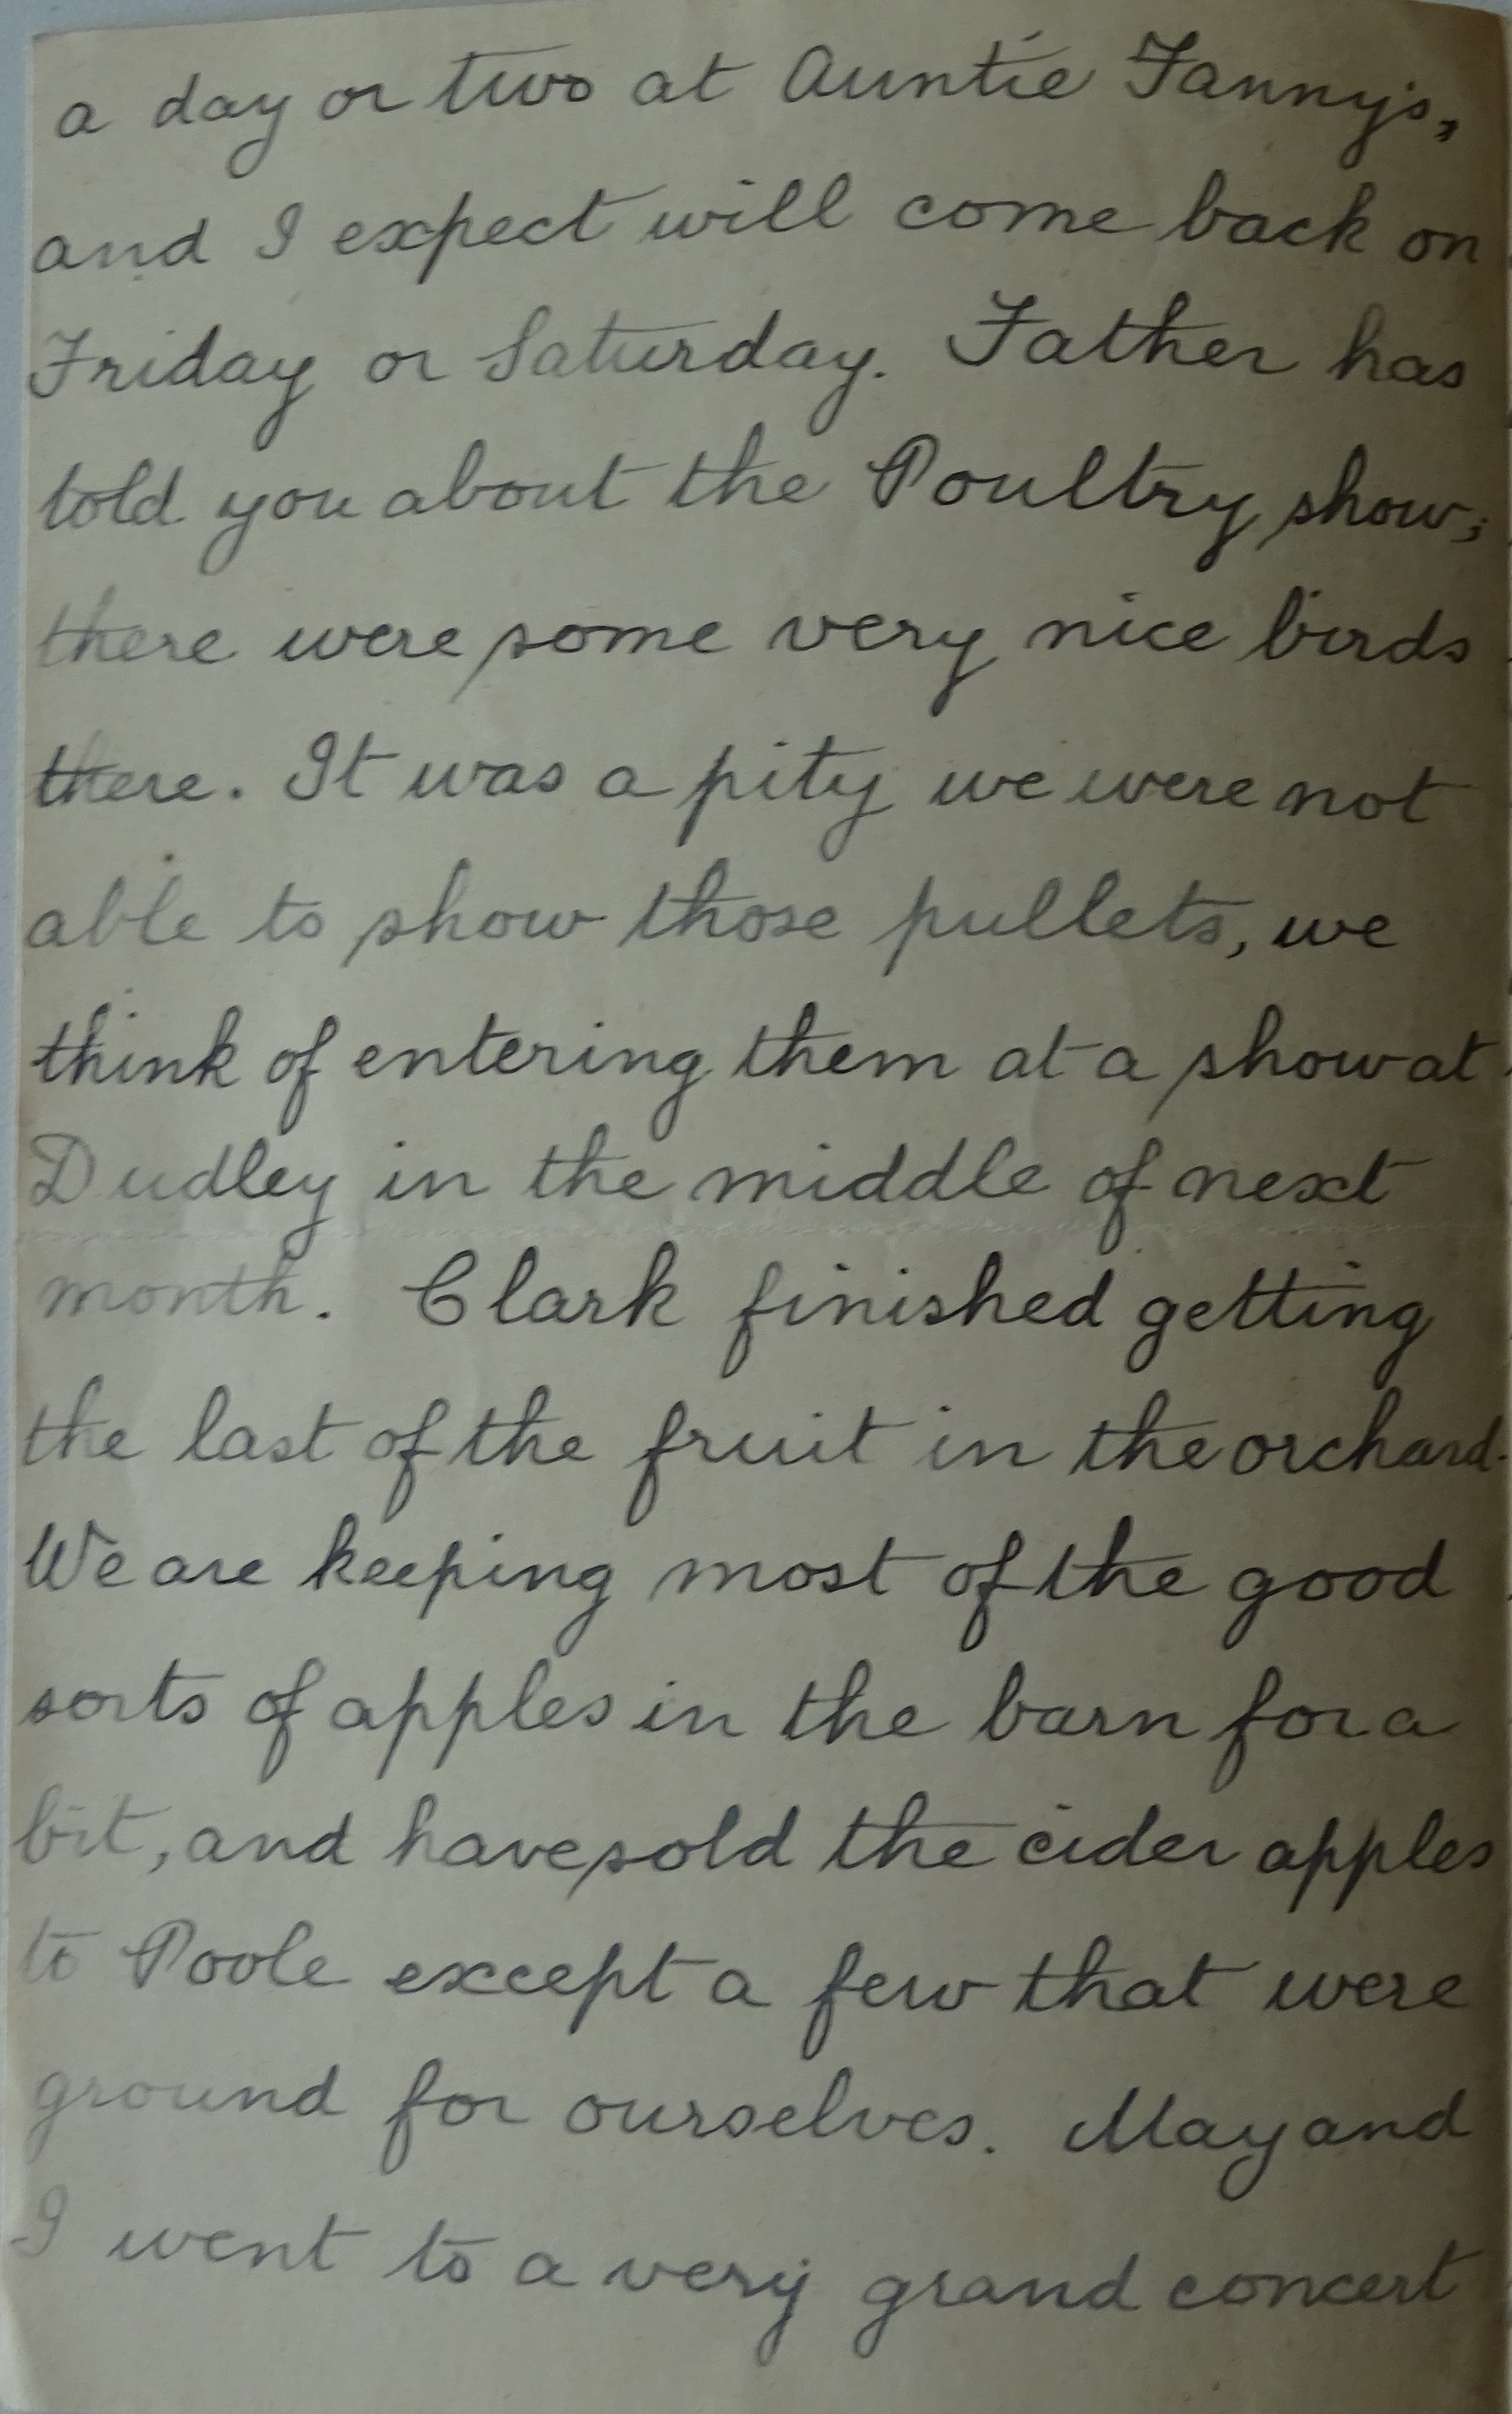 a day or two at Auntie Fanny's,
and I expect will come back on
Friday or Saturday. Father has
told you about the Poultry show;
there were some very nice birds
there. It was a pity we were not
able to show those pullets, we
think of entering them at a show at
Dudley in the middle of next
month. Clark finished getting
the last of the fruit in the orchard.
We are keeping most of the good
sorts of apples in the barn for a
bit, and have sold the cider apples
to Poole except a few that were
ground for ourselves. May and
I went to a very grand concert